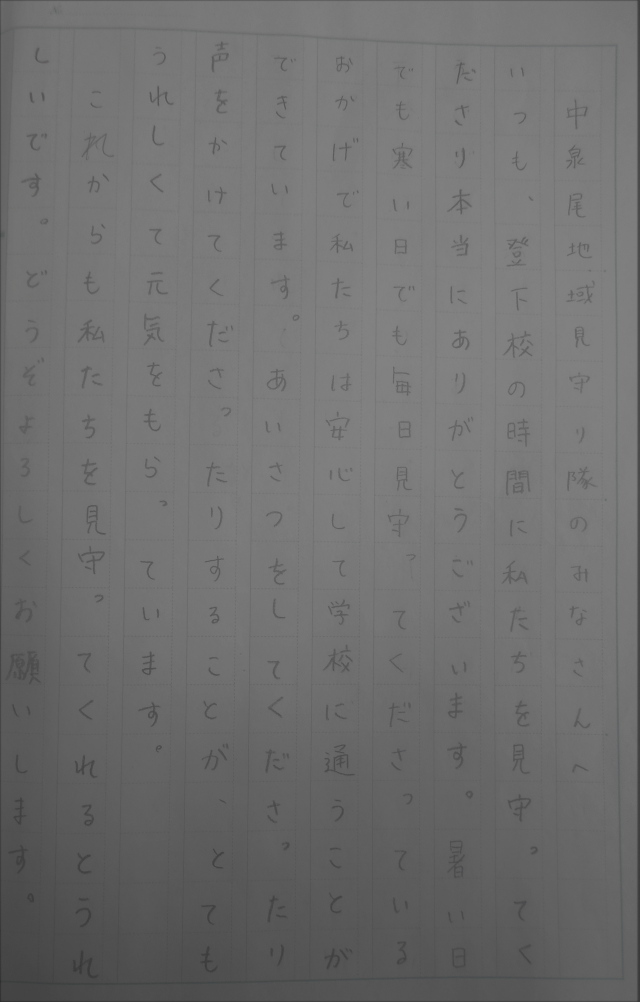 中泉尾地域見守り隊のみなさんへ
いつも、登下校の時間に私たちを見守ってく
ださり本当にありがとうございます。暑い日
でも寒い日でも毎日見守ってくださっている
おかげで私たちは安心して学校に通うことが
できています。あいさつをしてくださったり
声をかけてくださったりすることが、とても
うれしくて元気をもらっています。
これからも私たちを見守ってくれるとうれ
しいです。どうぞよろしくお願いします。